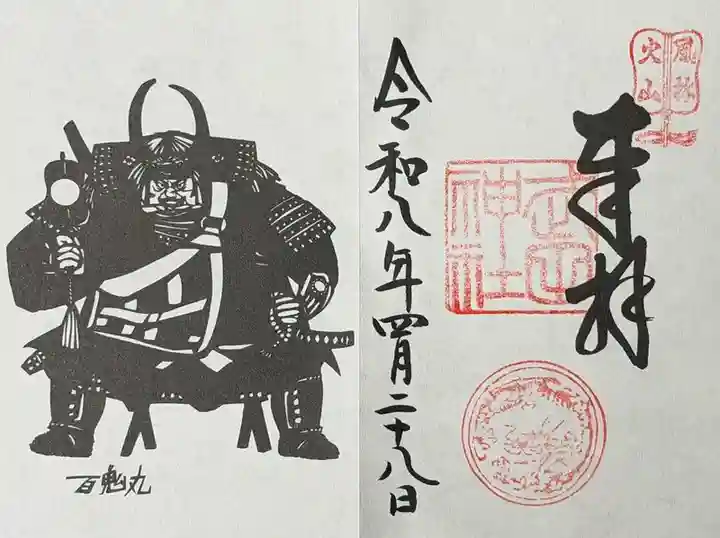 風林
火山
奉拝
武田
神社
令和八年四月二十八日
百鬼丸